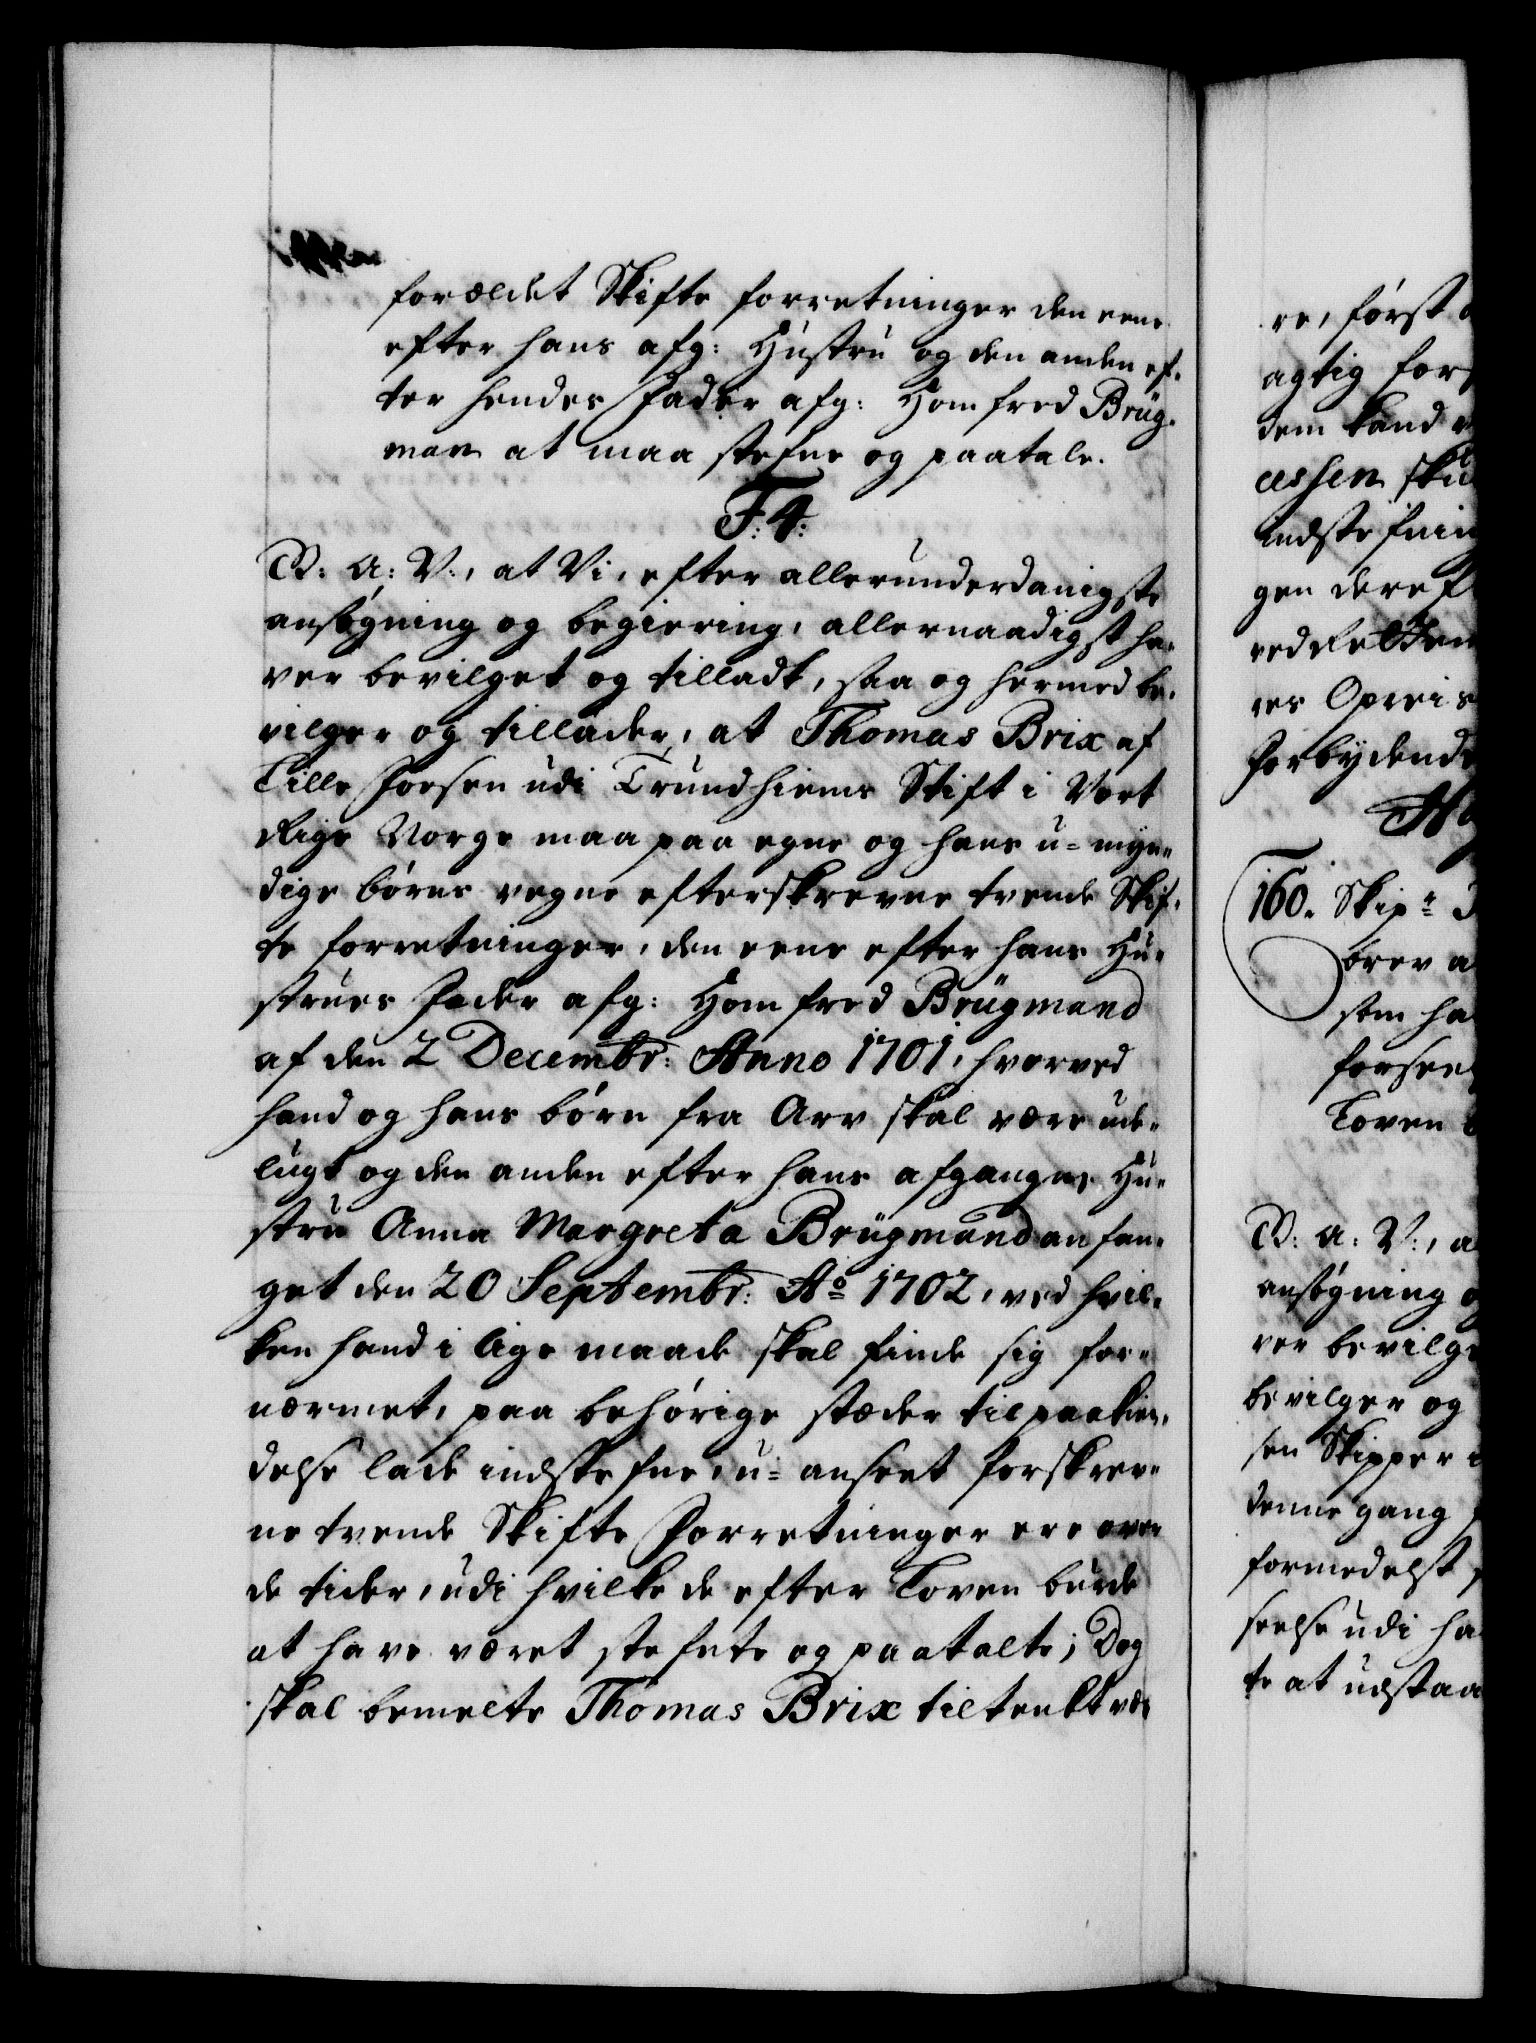 forældet Skifte forretninger den eene
efter hans afg: Hustru og den anden ef-
ter hendes Fader afg: Homfred Brüg-
man at maa stefne og paatale.
F: 4:
W: A: V:, at Vi, efter allerunderdanigste
ansøgning og begiering, allernaadigst ha-
ver bevilget og tilladt, saa og hermed be-
vilger og tillader, at Thomas Brix af
Lille Forsen udi Trundhiems Stift i Vort
Rige Norge maa paa egne og hans u-myn-
dige børns vegne efterskrevne tvende Skif-
te forretninger, den eene efter hans Hu-
strues Fader afg: Homfred Brügmand
af den 2 Decembr: Anno 1701, hvorved
hand og hans børn fra Arv skal være ude-
lugt og den anden efter hans afgangne Hu-
stru Anna Margreta Brügmand anfan-
get den 20 Septembr: Aº 1702, ved hvil-
ken hand i lige maade skal finde sig for-
nærmet, paa behørige stæder til paakien-
delse lade indstefne, u-anseet forskrev-
ne tvende Skifte Forretninger ere over
de tider, udi hvilke de efter Loven burde
at have været stefnte og paatalte; Dog
skal bemelte Thomas Brix tiltenkt væ-
re, først
agtig for
dem kand
cessen skul
indstefning
gen deref
ved Retten
res Opreis
Forbydende
160. Skipr
brev a
som ha
forseel
Loven
W: A: V:, a
ansøgning o
ver bevilge
bevilger og
sen Skipper
denne gang
formedelst
seelse udi ha
te at udstaa